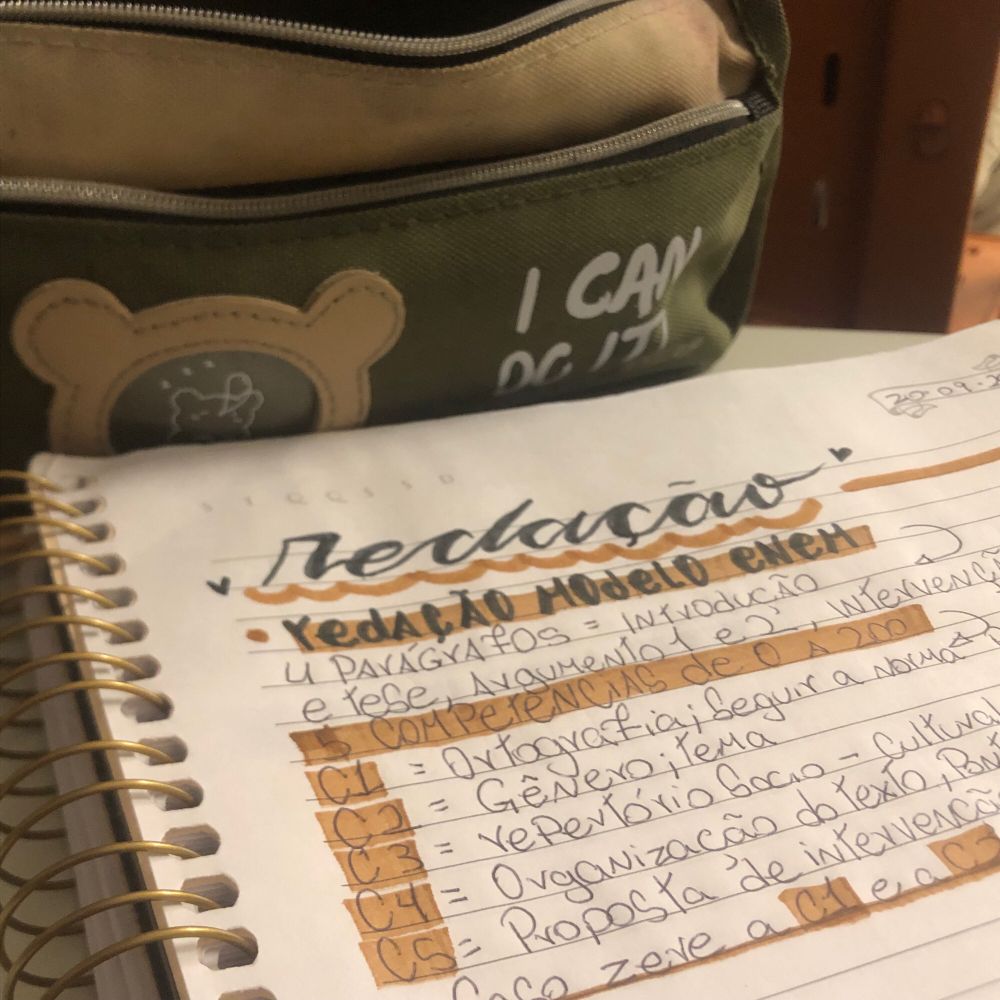 I CAN
DO IT!
S T Q Q S S D
20.09.2
Redação
• Redação Modelo ENEM
4 Parágrafos = Introdução
e tese, Argumento 1 e 2, intervençã
5 COMPETÊNCIAS de 0 A 200
C1 = Ortografia; Seguir a norma
C2 = Gênero; tema
C3 = repertório Socio-Cultural
C4 = Organização do texto,
C5 = Proposta de intervenção
Caso zere a C1 e a C2